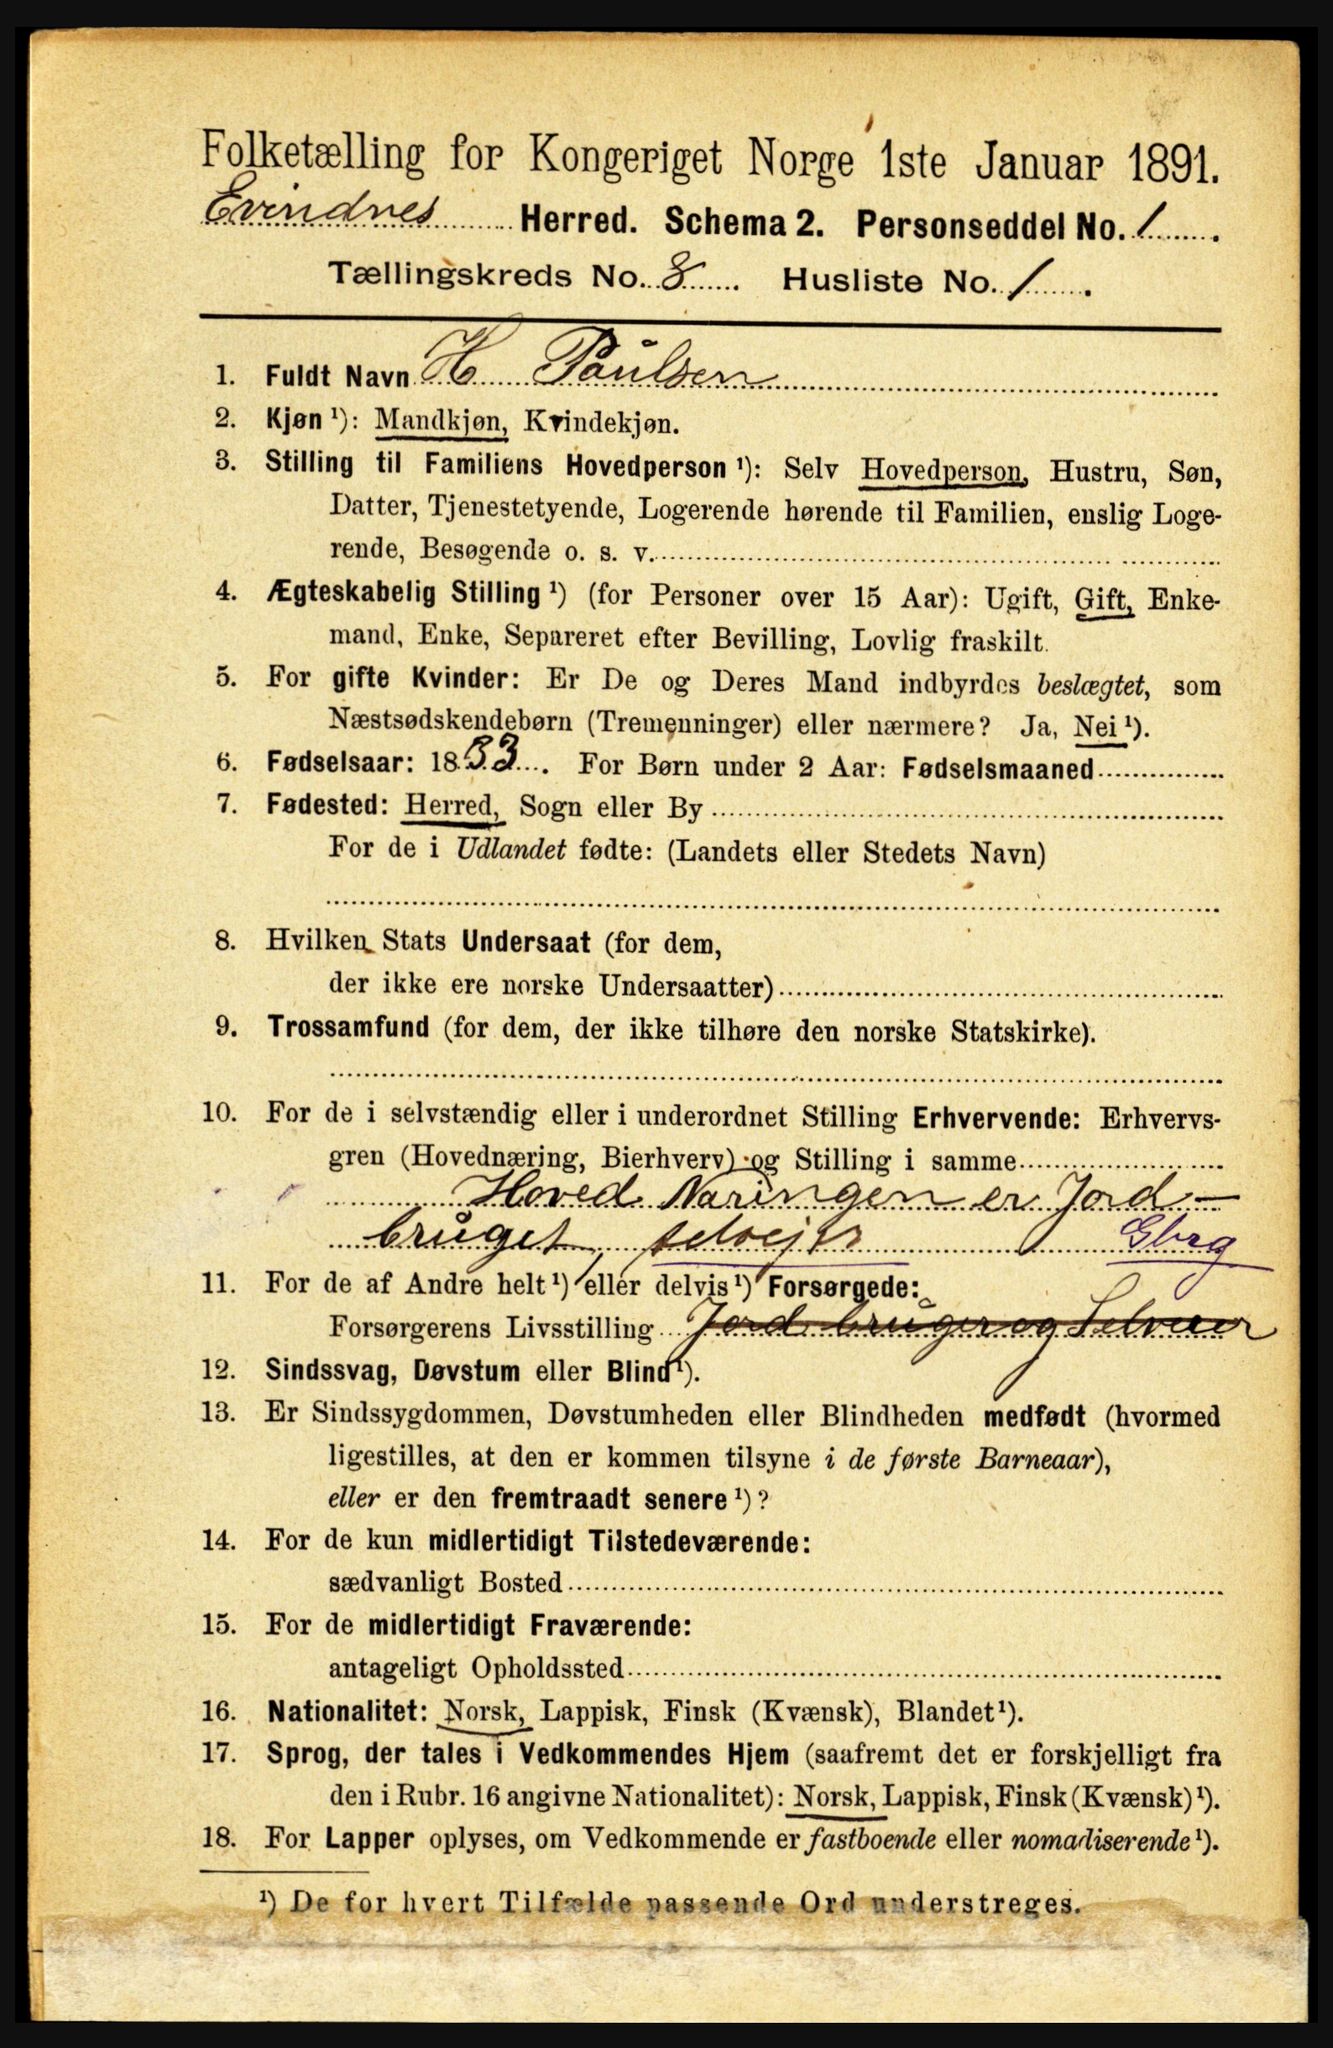 Folketælling for Kongeriget Norge 1ste Januar 1891.
Evindnes Herred. Schema 2. Personseddel No. 1.
Tællingskreds No. 8. Husliste No. 1.
1. Fuldt Navn H Paulsen
2. Kjøn ¹): Mandkjøn, Kvindekjøn.
3. Stilling til Familiens Hovedperson ¹): Selv Hovedperson, Hustru, Søn,
Datter, Tjenestetyende, Logerende hørende til Familien, enslig Loge-
rende, Besøgende o. s. v.
4. Ægteskabelig Stilling ¹) (for Personer over 15 Aar): Ugift, Gift, Enke-
mand, Enke, Separeret efter Bevilling, Lovlig fraskilt.
5. For gifte Kvinder: Er De og Deres Mand indbyrdes beslægtet, som
Næstsødskendebørn (Tremenninger) eller nærmere? Ja, Nei ¹).
6. Fødselsaar: 1833. For Børn under 2 Aar: Fødselsmaaned
7. Fødested: Herred, Sogn eller By
For de i Udlandet fødte: (Landets eller Stedets Navn)
8. Hvilken Stats Undersaat (for dem,
der ikke ere norske Undersaatter)
9. Trossamfund (for dem, der ikke tilhøre den norske Statskirke).
10. For de i selvstændig eller i underordnet Stilling Erhvervende: Erhvervs-
gren (Hovednæring, Bierhverv) og Stilling i samme
Hoved Naringen er Jord-
bruget, selvejer Gbrg
11. For de af Andre helt ¹) eller delvis ¹) Forsørgede:
Forsørgerens Livsstilling Jordbruger og Selveier
12. Sindssvag, Døvstum eller Blind ¹).
13. Er Sindssygdommen, Døvstumheden eller Blindheden medfødt (hvormed
ligestilles, at den er kommen tilsyne i de første Barneaar),
eller er den fremtraadt senere ¹)?
14. For de kun midlertidigt Tilstedeværende:
sædvanligt Bosted
15. For de midlertidigt Fraværende:
antageligt Opholdssted
16. Nationalitet: Norsk, Lappisk, Finsk (Kvænsk), Blandet ¹).
17. Sprog, der tales i Vedkommendes Hjem (saafremt det er forskjelligt fra
den i Rubr. 16 angivne Nationalitet): Norsk, Lappisk, Finsk (Kvænsk) ¹).
18. For Lapper oplyses, om Vedkommende er fastboende eller nomadiserende ¹).
¹) De for hvert Tilfælde passende Ord understreges.